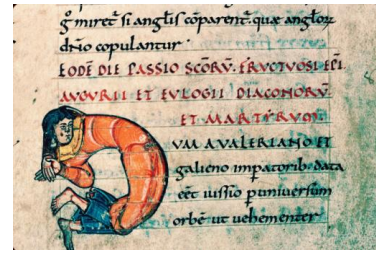 ḡ mirec̄ si anglis c̄parent̄. quæ angloꝝ
drio copulantur·
EODĒ DIE PASSIO SC̄ORV̄. FRVCTVOSI EP̄I
AVGVRII ET EVLOGII DIACONORV̄
ET MARTYRVM
VM A VALERIANO ET
galieno imp̄atorib· data
eēt iussio p̄ universum
orbē ut vehementer